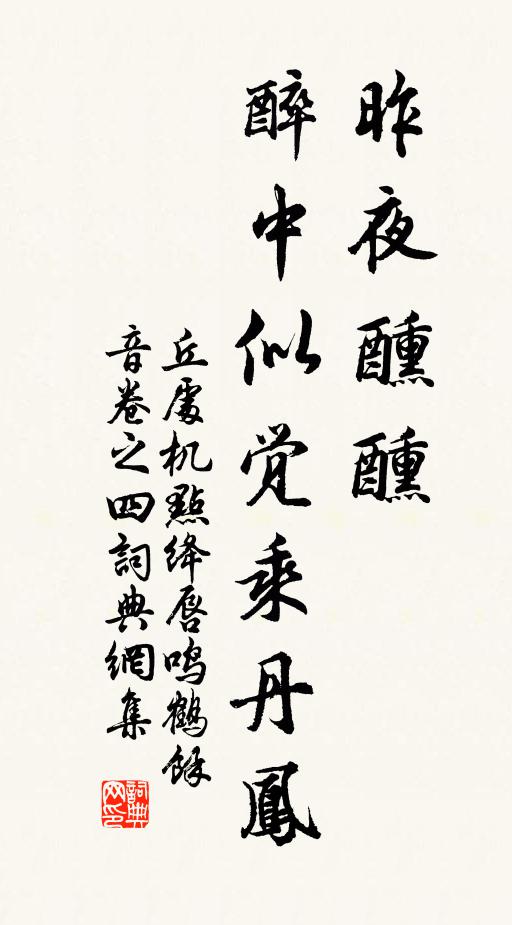 昨夜醺醺
醉中似觉乘丹鳳
丘處机點绛唇鸣鶴餘
音卷之四詞典網集
詞典网印